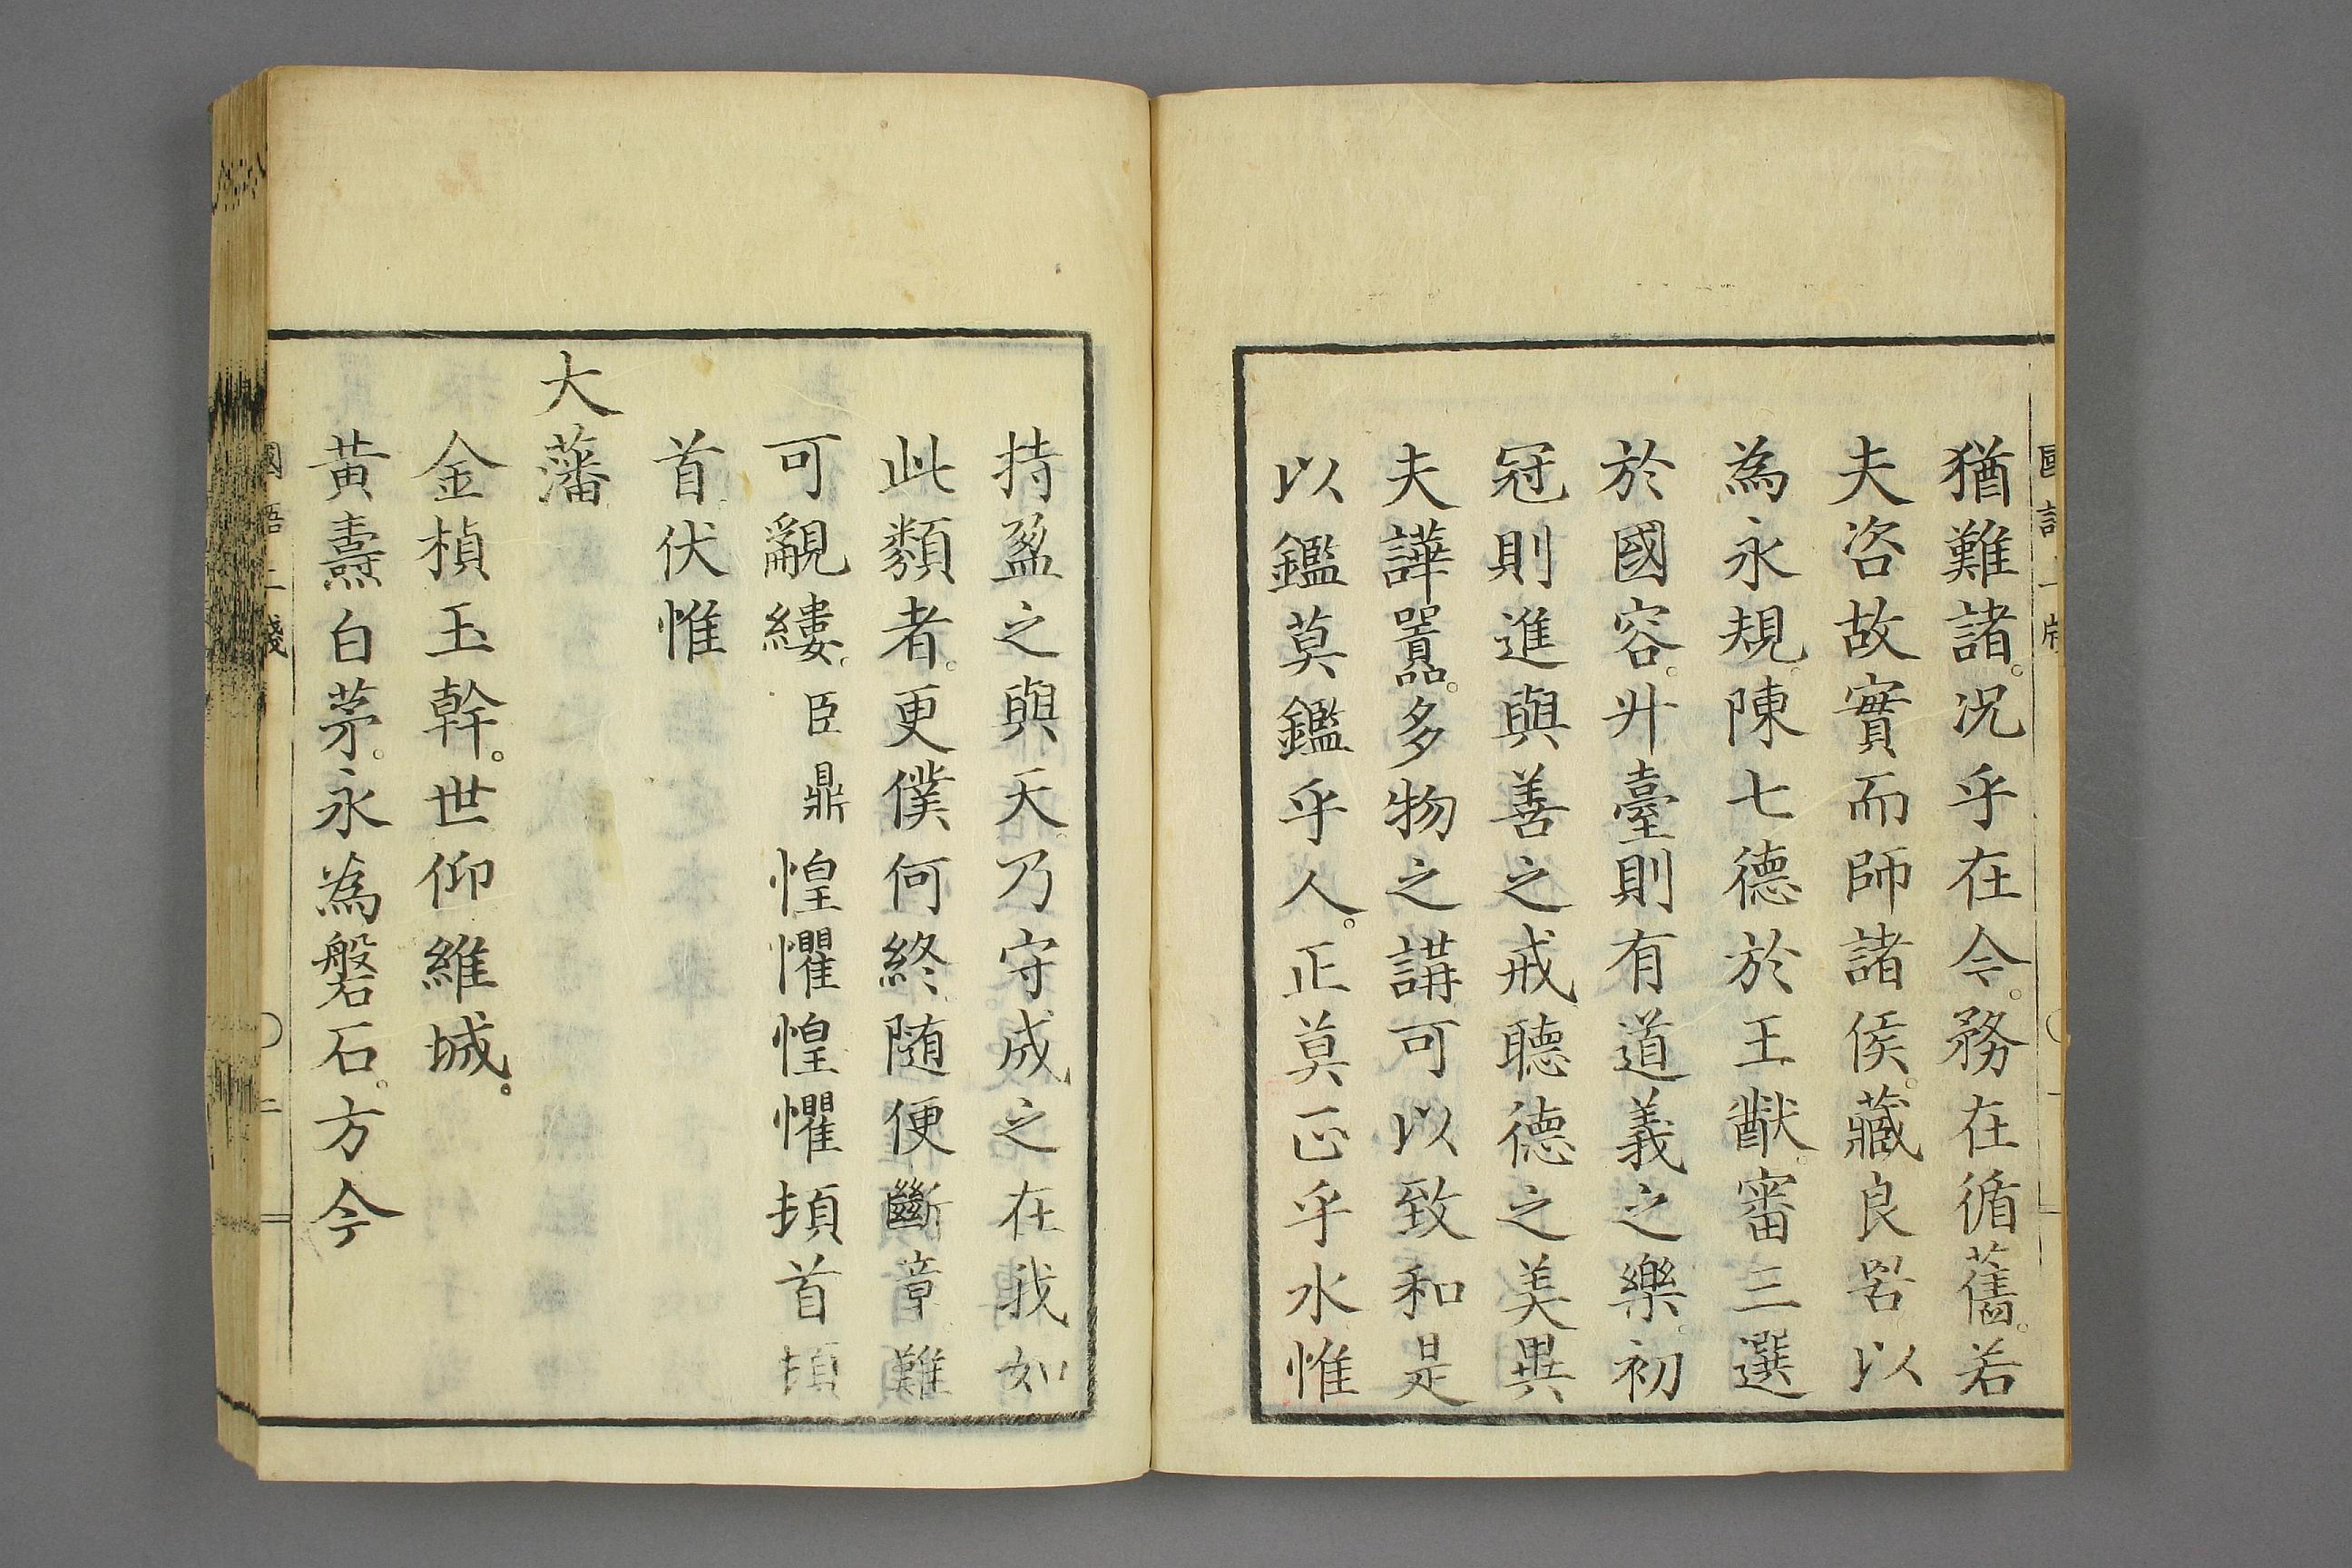 猶難諸。况乎在今。務在循舊。若
夫咨故實而師諸侯。藏良畧以
為永規。陳七德於王猷。審三選
於國容。升臺則有道義之樂。初
冠則進與善之戒。聽德之美異
夫譁嚣。多物之講可以致和是
以鑑莫鑑乎人。正莫正乎水惟
持盈之與天。乃守成之在我如
此類者。更僕何終。随便斷章難
可覼縷。臣鼎惶懼惶懼頓首頓
首伏惟
大藩
金楨玉幹。世仰維城。
黄壽白茅。永為磐石。方今
國語上牋
二